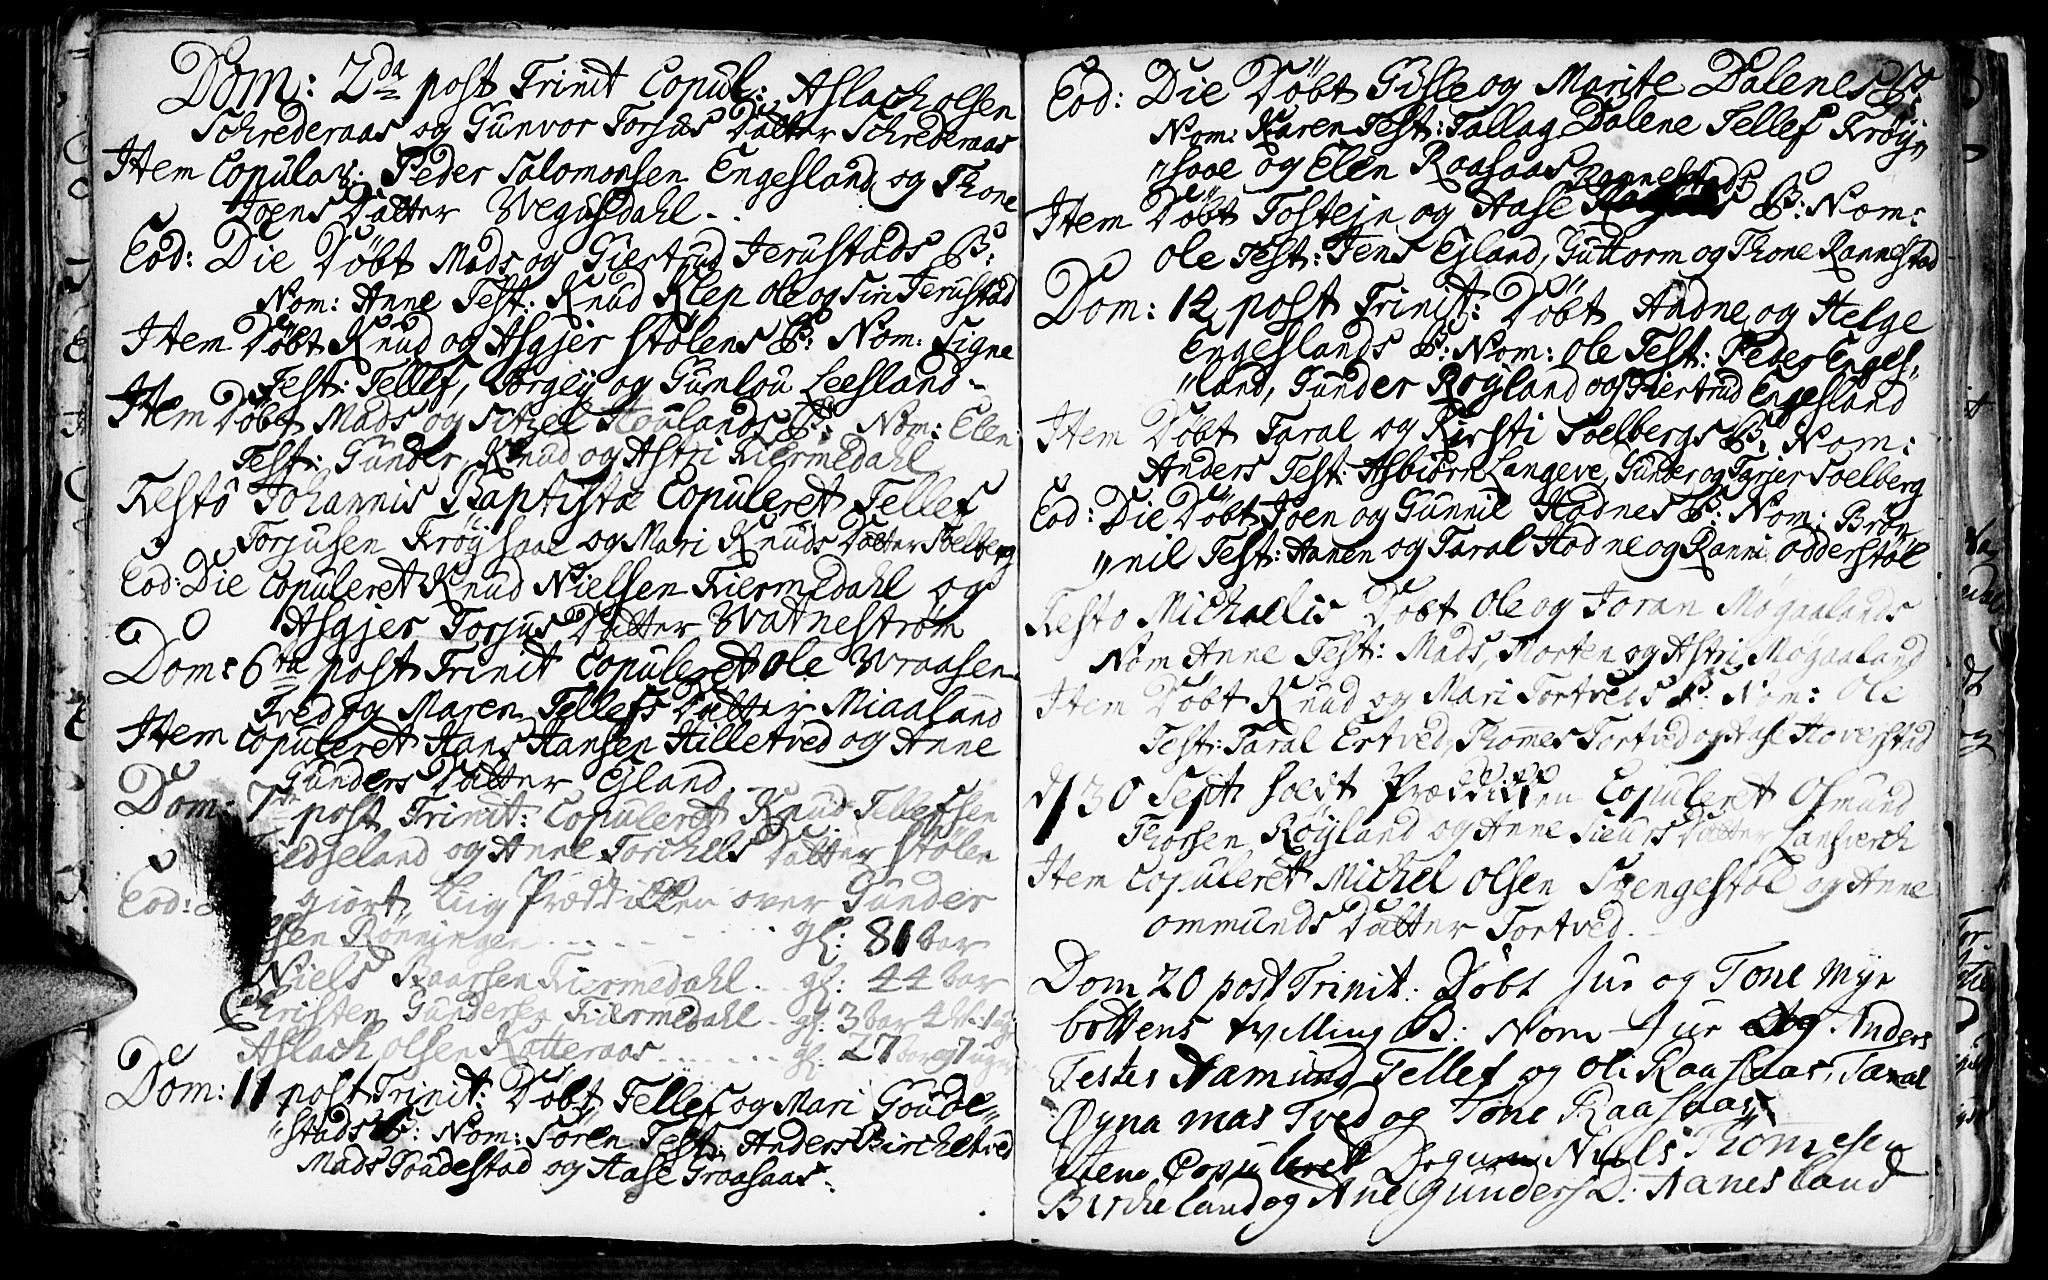 Dom: 2da post Trinit Copul: Aslach olsen
Schrederaas og Gunvor Torjus Datter Schrederaas
Item Copular: Peder Salomonsen Engesland og Thone
Joens Datter Wegusdahl
Eod: Die Døbt Mads og Giertrud Jerustads B:
Nom: Anne Test: Knud Klep ole og Siri Jerustad
Item Døbt Knud og Asgjer Stølens B: Nom: Signe
Test: Tellef, Torgey og Gunlou Leesland
Item Døbt Mads og Sitzel Houlands B: Nom: Elen
Test: Gunder, Knud og Astri Kiermedahl
Festo Johannis Baptistæ Copuleret Tellef
Torjusen Frøysaae og Mari Knuds Datter Soelberg
Eod: Die Copuleret Knud Nielsen Fiermedahl og
Asgjer Torjus Datter Watnestrøm
Dom: 6ta post Trinit Copuleret Ole Wraasen
Tved og Maren Tellefs Datter Miaaland
Item Copuleret Hans Hansen Hilletved og Anne
Gunders Datter Egland
Dom: 7de post Trinit: Copuleret Knud Tellefsen
edseland og Anne Torchels Datter Stølen
Eod: giort Liig Prædicken over Gunder
lsen Rønningen gl: 81 aar
Niels Raarsen Fiermedahl gl: 44 aar
Christen Gundersen Fiermedahl gl: 3 aar 4
Aslach olsen Røtteraas gl: 27 aar og 7 uger
Dom: 11 post Trinit: Døbt Tellef og Mari Goude-
"stads B: Nom: Søren Test: Anders Birchetved
Mads Goudestad og Aase Groasaas
Eod: Die Døbt Gisle og Marite Dalenes B:
Nom: Karen Test: Tallag Dalene Tellef Frøy
"saae og Elen Raasaas
Item Døbt Tostejn og Aase Rannestads B: Nom:
Ole Test: Jens Egland, Guttorm og Thone Rannestad
Dom: 12 post Trinit: Døbt Andne og Helge
Engeslands B: Nom: Ole Test: Peder Enges"
"land, Gunder Røyland og Giertrud Engesland
Item Døbt Taral og Kirsti Soelbergs B: Nom:
Anders Test: Asbiørn Langeve, Gunder og Torjer Soelberg
Eod: Die Døbt Joen og Gunnil Hodnes B: Nom: Brøn
"nil Test: Aanen og Taral Hodne og Ranni Odderstøl
Festo Michaelis Døbt Ole og Joran Møgaalands
Nom Anne Test: Mads, Morten og Astri Møgaaland
Item Døbt Knud og Mari Tortveds B: Nom: Ole
Test: Taral Ertved, Thomes Tortved og Aase Hoverstad
d/30 Sept: holdt Prædicken Copuleret Osmund
Thorsen Røyland og Anne Siurs Datter Lansverch
Item Copuleret Michel Olsen Svengestøl og Anne
Ommunds Datter Tortved
Dom 20 post Trinit: Døbt Jur og Tone Myr
bottens tvilling B: Nom Jur og Anders
Testes Aamund Tellef og Oli Raasaas, Taral
Øyna mas Tved og Tone Raasaas
Item Copuleret Niels Thomesen
Birkeland og Ane Gunders D: Aanesland